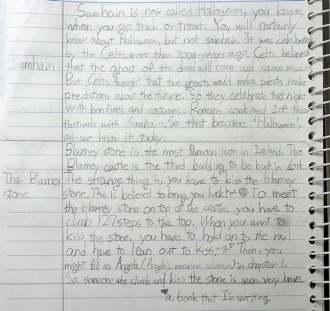 Samhain is now called Halloween, you know,
when you go trick or treat. You will certainly
know about Halloween, but not samhain. It was celebrated
by the Celts more than 2000 years ago. Celts believed
Samhain
that the ghost of the dead will come and cause
But Celts thought that the ghosts would make priests make
predictions about the future. So they celebrate that night
with bonfires and costumes. Romans combined 2 of their
festivals with Samhain. So that became "Halloween",
as we know it today.
Blarney stone is the most famous icon in Ireland. The
Blarney castle is the third building to be built in
The Blarney stone
The strange thing is, you have to kiss the blarney
stone. This is believed to bring you luck. To meet
the blarney stone on top of the castle, you have to
climb 127 steps to the top. When you want to
kiss the stone, you have to hold on to the rail
and have to lean out to kiss. Then, you
might fall as Angela (Angela, in chapter 1.
So someone who climb and kiss the stone is seen very brave.
a book that I'm writing